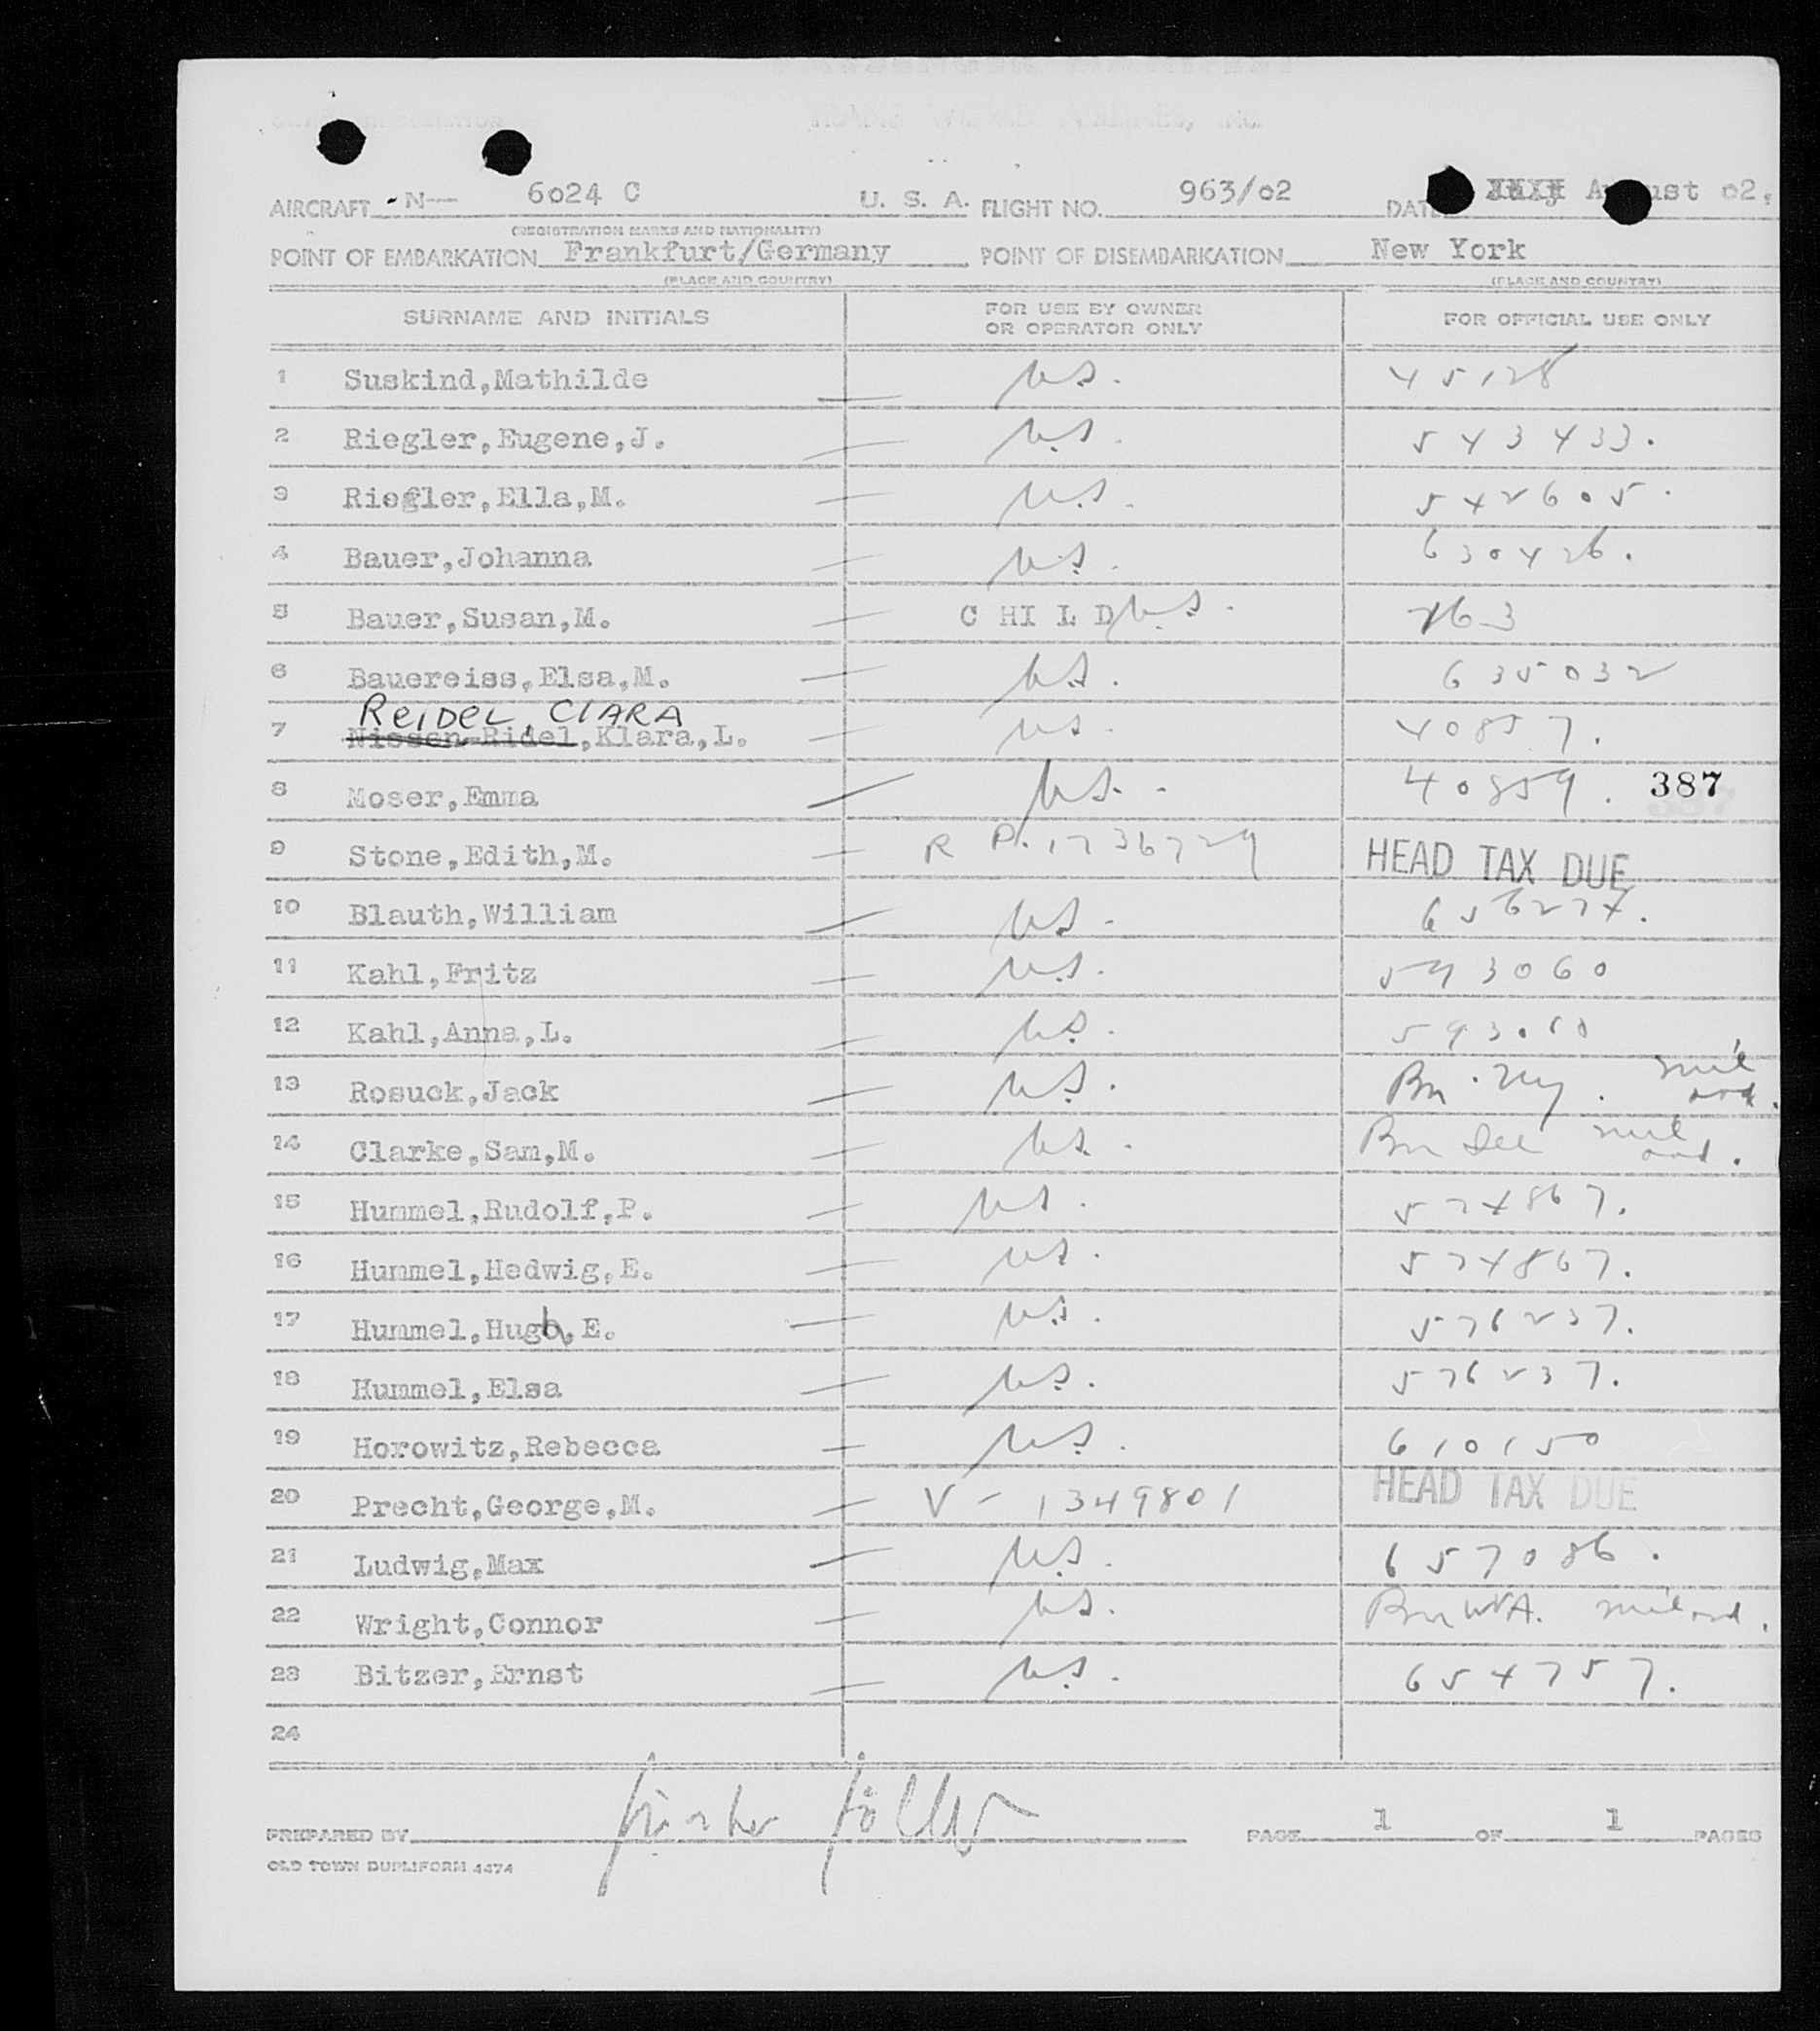 AIRCRAFT N— 6024 C U. S. A. FLIGHT NO. 963/02 DATE August 02,
(REGISTRATION MARKS AND NATIONALITY)
POINT OF EMBARKATION Frankfurt/Germany POINT OF DISEMBARKATION New York
(PLACE AND COUNTRY) (PLACE AND COUNTRY)
SURNAME AND INITIALS FOR USE BY OWNER OR OPERATOR ONLY FOR OFFICIAL USE ONLY
1 Suskind,Mathilde U.S. 45128
2 Riegler,Eugene,J. U.S. 543433.
3 Riegler,Ella,M. U.S. 542605.
4 Bauer,Johanna U.S. 630426.
5 Bauer,Susan,M. C HI L D U.S. 763
6 Bauereiss,Elsa,M. U.S. 635032
REIDEL, CLARA
7 Nissen-Ridel,Klara,L. U.S. 40857.
8 Moser,Emma U.S. 40859. 387
9 Stone,Edith,M. R P. 1736729 HEAD TAX DUE
10 Blauth,William U.S. 656274.
11 Kahl,Fritz U.S. 593060
12 Kahl,Anna,L. U.S. 593060
13 Rosuck,Jack U.S. Bn. Ny. mil ord.
14 Clarke,Sam,M. U.S. Bn mil ord.
15 Hummel,Rudolf,P. U.S. 574867.
16 Hummel,Hedwig,E. U.S. 574867.
17 Hummel,Hugh,E. U.S. 576237.
18 Hummel,Elsa U.S. 576237.
19 Horowitz,Rebecca U.S. 610150
20 Precht,George,M. V - 1349801 HEAD TAX DUE
21 Ludwig,Max U.S. 657086.
22 Wright,Connor U.S. Bn WVA. mil ord.
23 Bitzer,Ernst U.S. 654757.
24
PREPARED BY PAGE 1 OF 1 PAGES
OLD TOWN DUPLIFORM 4474